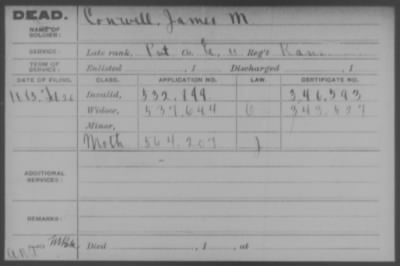 DEAD. Conwell. James M
NAME OF SOLDIER:
SERVICE: Late rank, Pvt Co. G, 11 Reg't Kans
TERM OF SERVICE: Enlisted , 1 Discharged , 1
DATE OF FILING. CLASS. APPLICATION NO. LAW. CERTIFICATE NO.
Invalid, 532.199 346.393
Widow, 537.644 343.537
Minor,
Moth 564.207 J
ADDITIONAL SERVICES:
REMARKS:
Died , 1 , at